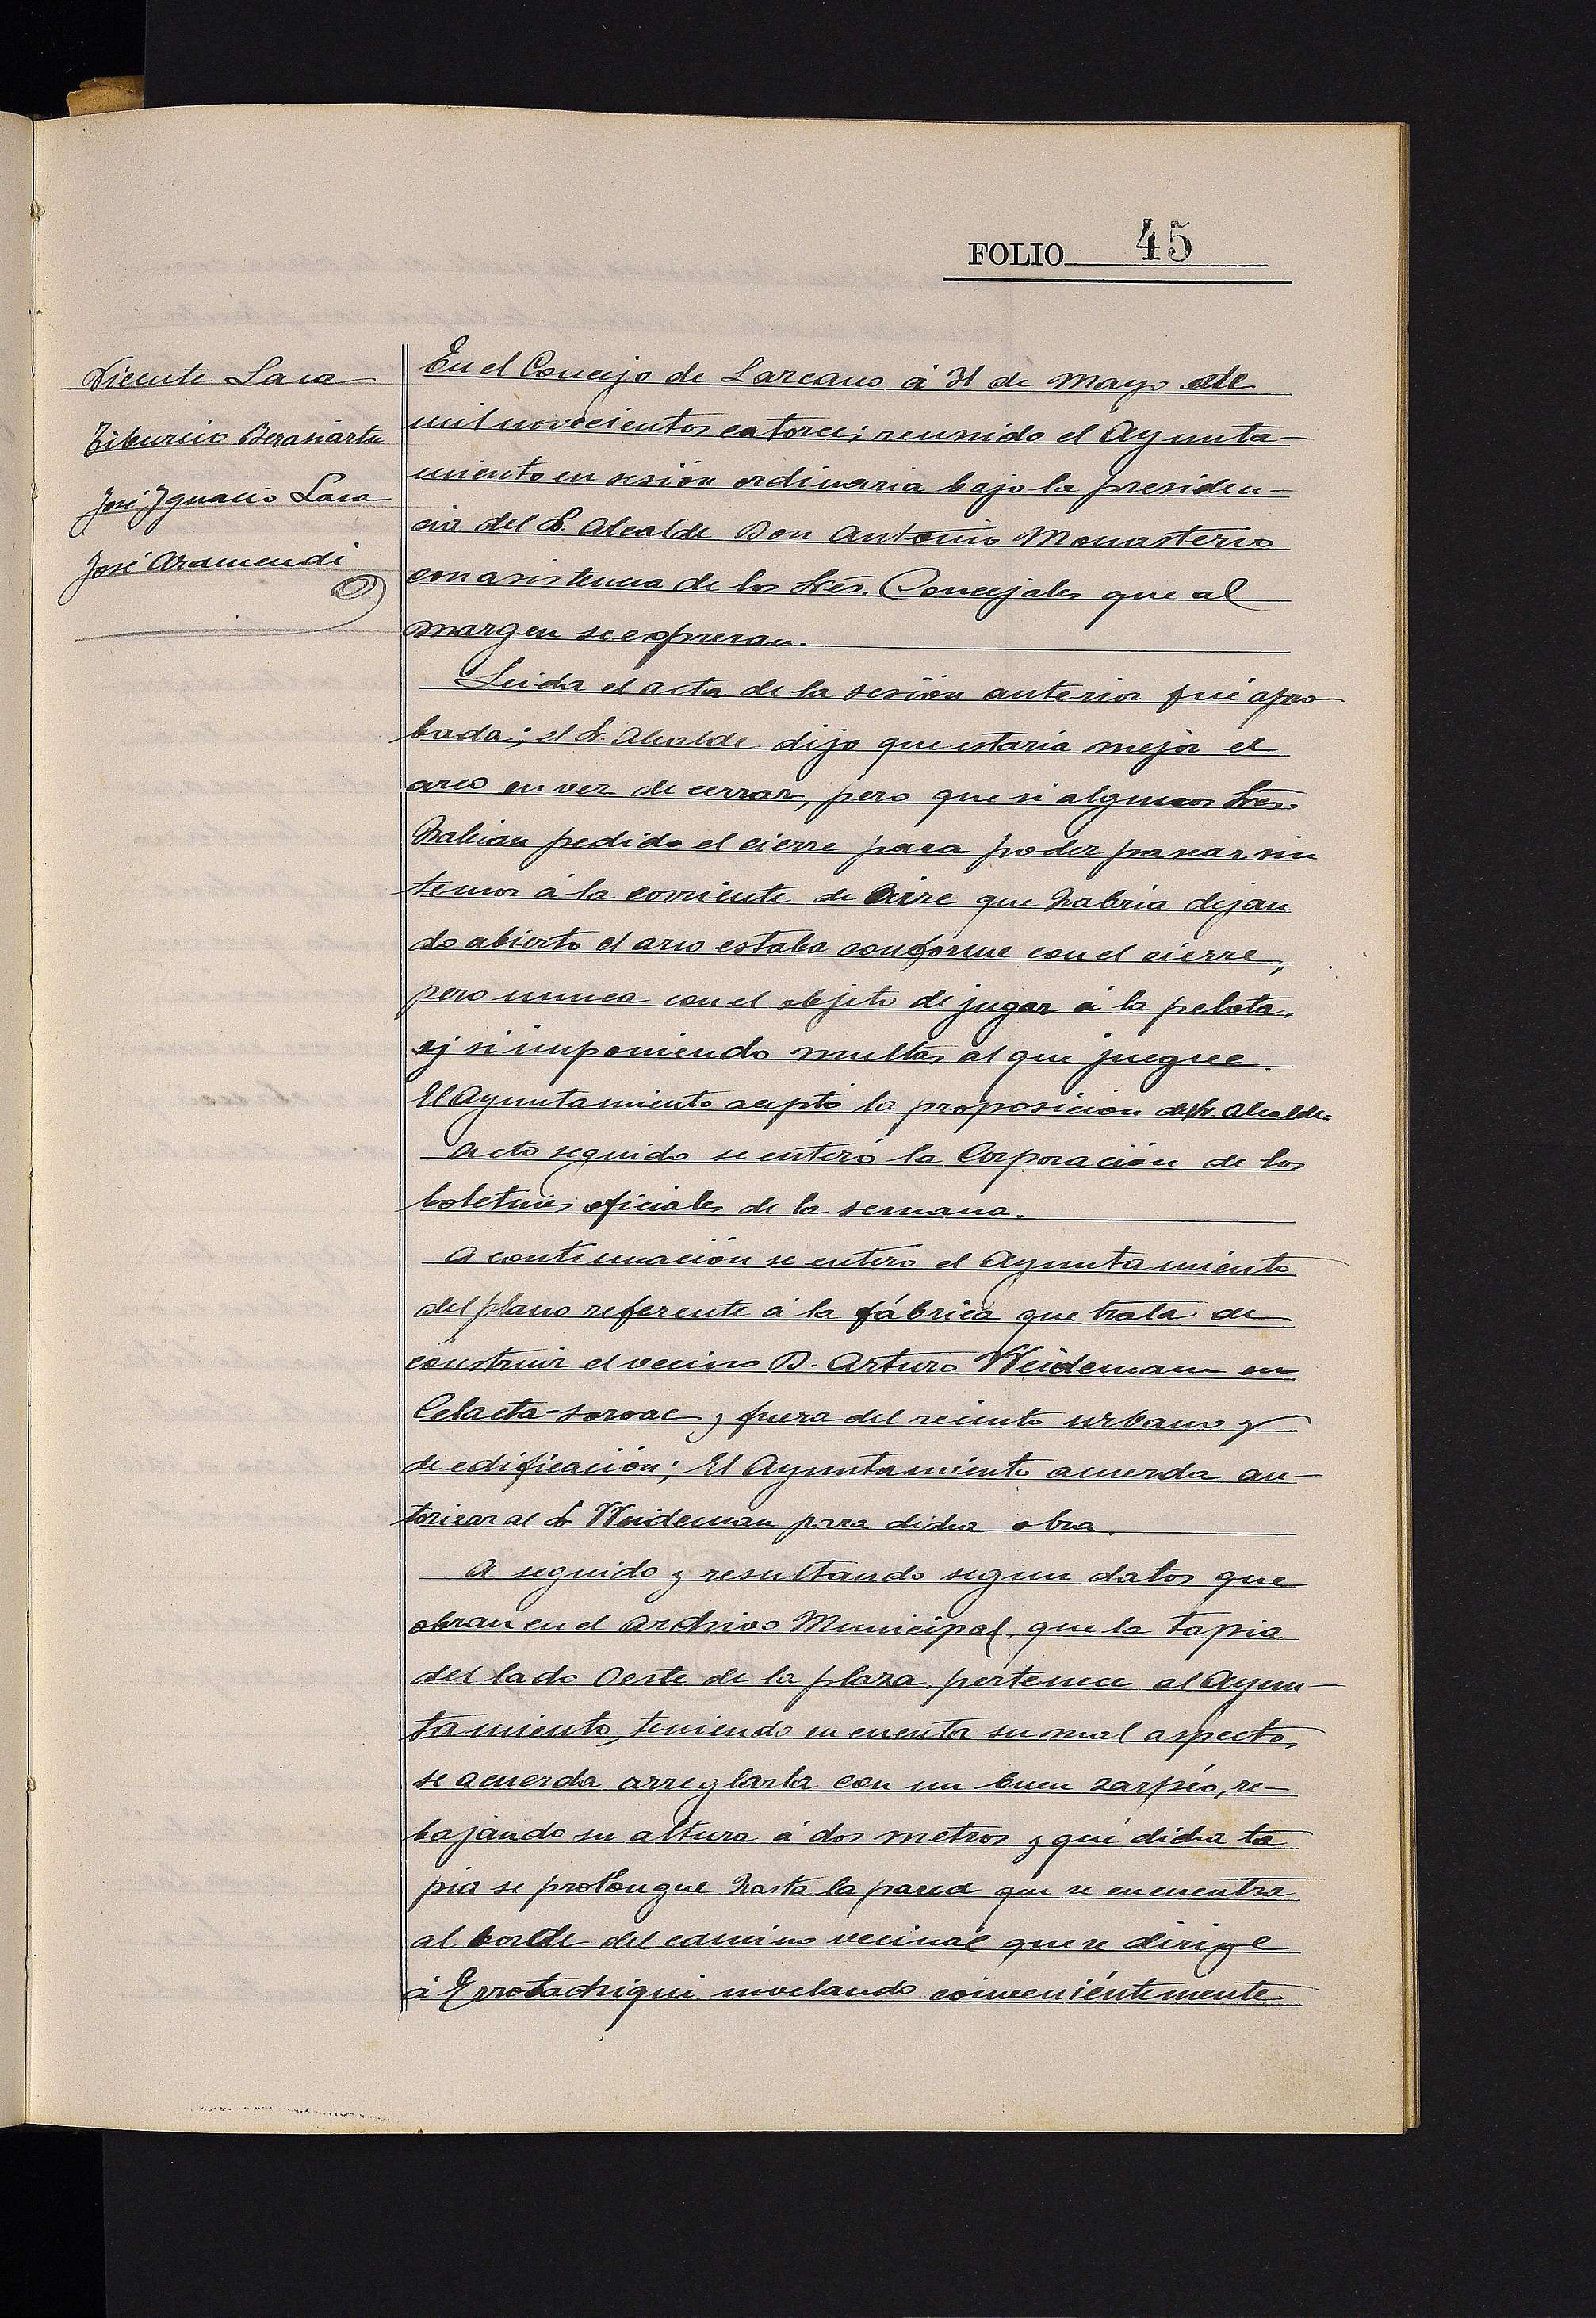 FOLIO 45
Vicente Lasa
Tiburcio Berasiartu
José Ygnacio Lasa
José Aramendi
En el Concejo de Lazcano á 31 de Mayo de
mil novecientos catorce; reunido el Ayunta-
miento en sesión ordinaria bajo la presiden-
cia del Sr. Alcalde Don Antonio Monasterio
con asistencia de los Sres. Concejales que al
margen se expresan.
Leida el acta de la sesión anterior fué apro
bada; el Sr. Alcalde dijo que estaria mejor el
arco en vez de cerrar, pero que si algunos Sres.
habian pedido el cierre para poder pasear sin
temor á la corriente de aire que habria dejan
do abierto el arco estaba conforme con el cierre,
pero nunca con el objeto de jugar á la pelota,
si imponiendo multas al que juegue.
El Ayuntamiento aceptó la proposicion del Sr. Alcalde=
Acto seguido se enteró la Corporación de los
boletines oficiales de la semana.
A continuación se enteró el Ayuntamiento
del plano referente á la fábrica que trata de
construir el vecino D. Arturo Weidemann en
Celaeta-soroac y fuera del recinto urbano y
de edificación; El Ayuntamiento acuerda au-
torizar al Sr. Weideman para dicha obra.
A seguido y resultando segun datos que
obran en el archivo Municipal, que la tapia
del lado Oeste de la plaza pertenece al Ayun-
tamiento, teniendo en cuenta su mal aspecto,
se acuerda arreglarla con un buen zarpéo, re-
bajando su altura á dos metros y que dicha ta
pia se prolongue hasta la pared que se encuentra
al borde del camino vecinal que se dirige
á Errotachiqui nivelando convenientemente